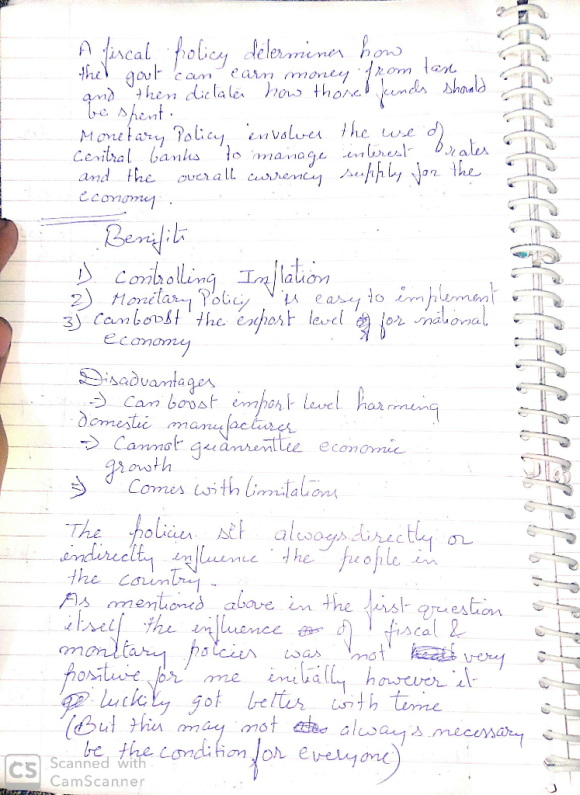 A fiscal policy determines how
the govt can earn money from tax
and then dictates how those funds should
be spent.
Monetary Policy involves the use of
central banks to manage interest rates
and the overall currency supply for the
economy.
Benifits
1) Controlling Inflation
2) Monetary Policy is easy to implement
3) Can boost the export level for national
economy
Disadvantages
→ Can boost import level harming
domestic manufacturer
→ Cannot guanrentee economic
growth
→ Comes with limitations
The policies set always directly or
indirectly influence the people in
the country.
As mentioned above in the first question
itself the influence of fiscal &
monetary policies was not very
positive for me initially however it
luckily got better with time
(But this may not always necessary
be the condition for everyone)
CS Scanned with
CamScanner